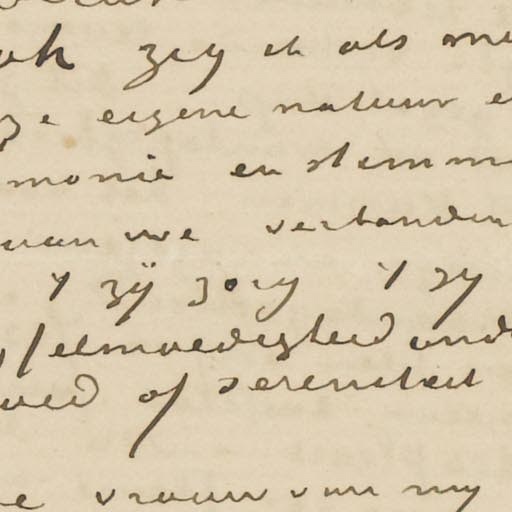 ook zeg ik als me
ze eigene natuur e
monie en stemm
waarmee verbonden
't zij zorg 't zy
weemoedigheid ond
oed of sereniteit
e vrouw van my